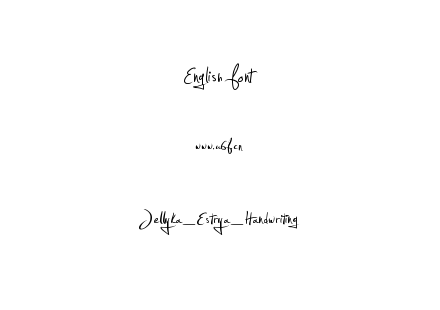 English font
www.a6f.cn
Jellyka_Estrya_Handwriting